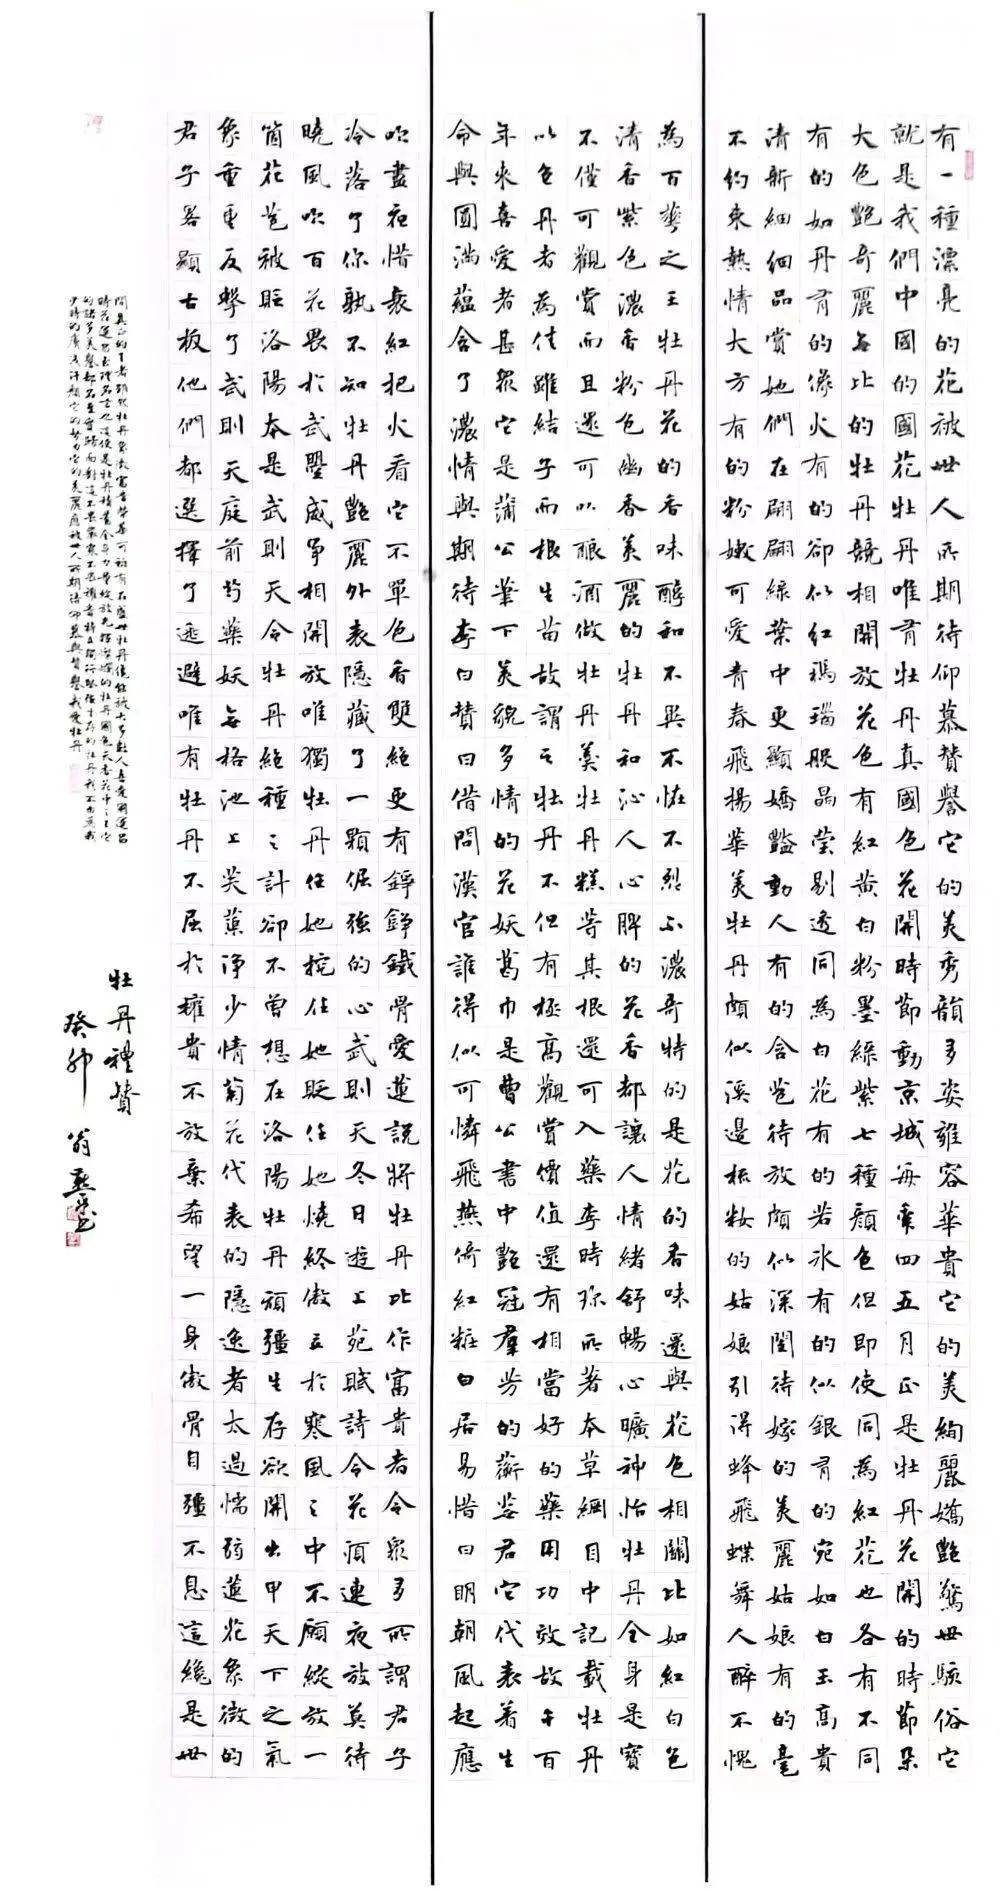 有一種漂亮的花被世人所期待仰慕贊譽它的美秀韻多姿雍容華貴它的美絢麗嬌艷驚世駭俗它
就是我們中國的國花牡丹唯有牡丹真國色花開時節動京城每年四五月正是牡丹花開的時節朵
大色艷奇麗無比的牡丹競相開放花色有紅黃白粉墨綠紫七種顏色但即使同為紅花也各有不同
有的如丹有的像火有的卻似紅瑪瑙般晶瑩剔透同為白花有的若冰有的似銀有的宛如白玉高貴
清新細細品賞她們在翩翩綠葉中更顯嬌豔動人有的含苞待放頗似深閨待嫁的美麗姑娘有的毫
不約束熱情大方有的粉嫩可愛青春飛揚華美牡丹頗似溪邊梳妝的姑娘引得蜂飛蝶舞人醉不愧
為百花之王牡丹花的香味醇和不異不怪不烈不濃奇特的是花的香味還與花色相關比如紅白色
清香紫色濃香粉色幽香美麗的牡丹和沁人心脾的花香都讓人情緒舒暢心曠神怡牡丹全身是寶
不僅可觀賞而且還可以釀酒做牡丹羹牡丹糕等其根還可入藥李時珍所著本草綱目中記載牡丹
以色丹者為佳雖結子而根生苗故謂之牡丹不但有極高觀賞價值還有相當好的藥用功效故千百
年來喜愛者甚眾它是蒲公筆下美貌多情的花妖葛巾是曹公書中艷冠群芳的蘅芷君它代表着生
命與圓滿蘊含了濃情與期待李白贊曰借問漢宮誰得似可憐飛燕倚紅粧白居易惜曰明朝風起應
吹盡夜惜衰紅把火看它不單色香雙絕更有錚錚鐵骨愛蓮說將牡丹比作富貴者令眾多所謂君子
冷落了你孰不知牡丹艷麗外表隱藏了一顆倔強的心武則天冬日遊上苑賦詩令花須連夜放莫待
曉風吹百花畏於武曌威爭相開放唯獨牡丹任她挖任她貶任她燒終傲立於寒風之中不願綻放一
箇花苞被貶洛陽本是武則天令牡丹絕種之計卻不曾想在洛陽牡丹頑彊生存欲開出甲天下之氣
象重重反擊了武則天庭前芍藥妖無格池上芙蕖淨少情菊花代表的隱逸者太過懦弱蓮花象徵的
君子畧顯古板他們都選擇了逃避唯有牡丹不屈於權貴不放棄希望一身傲骨自彊不息這纔是世
牡丹禮贊
癸卯